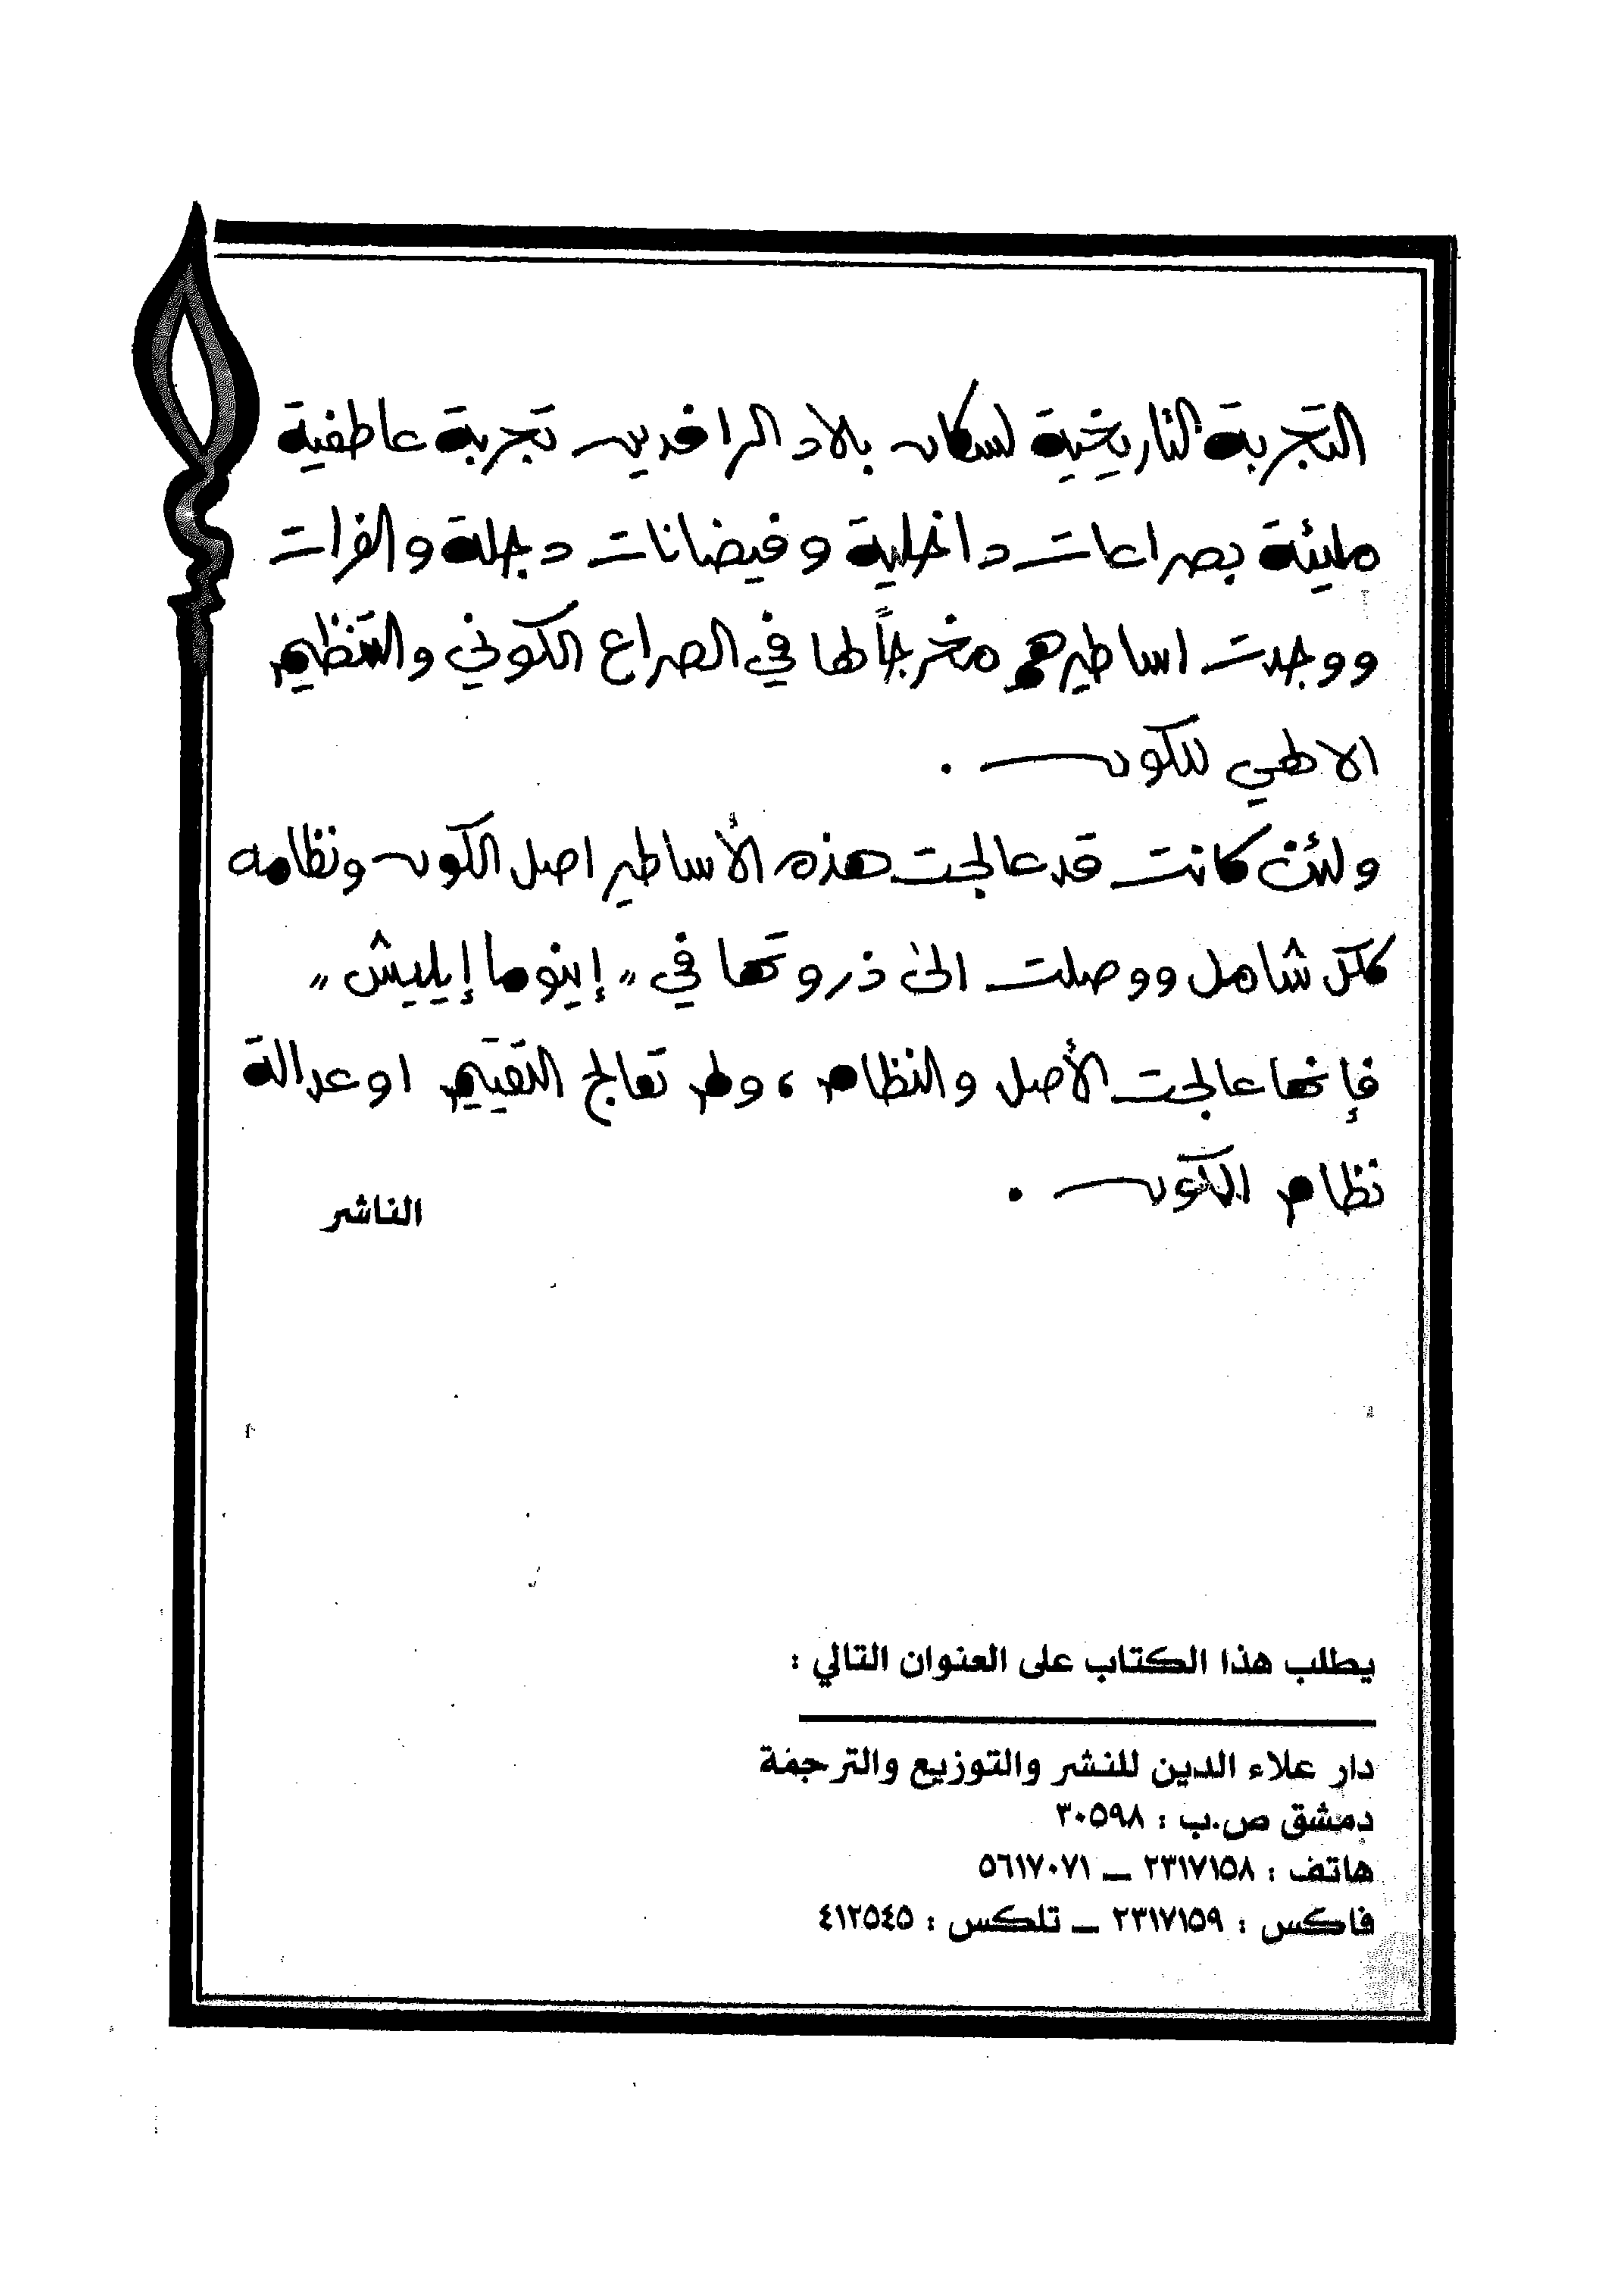 التجربة التاريخية لسكان بلاد الرافدين تجربة عاطفية
مليئة بصراعات داخلية وفيضانات دجلة والفرات
ووجدت اساطيرهم مخرجاً لها في الصراع الكوني والتنظيم
الالهي للكون .
ولئن كانت قد عالجت هذه الأساطير اصل الكون ونظامه
ككل شامل ووصلت الى ذروتها في " إينوما إيليش "
فإنها عالجت الأصل والنظام ، ولم تعالج التقييم او عدالة
نظام الكون .
الناشر
يطلب هذا الكتاب على العنوان التالي :
دار علاء الدين للنشر والتوزيع والترجمة
دمشق ص.ب : ٣٠٥٩٨
هاتف : ٢٣١٧١٥٨ — ٥٦١٧٠٧١
فاكس : ٢٣١٧١٥٩ — تلكس : ٤١٢٥٤٥